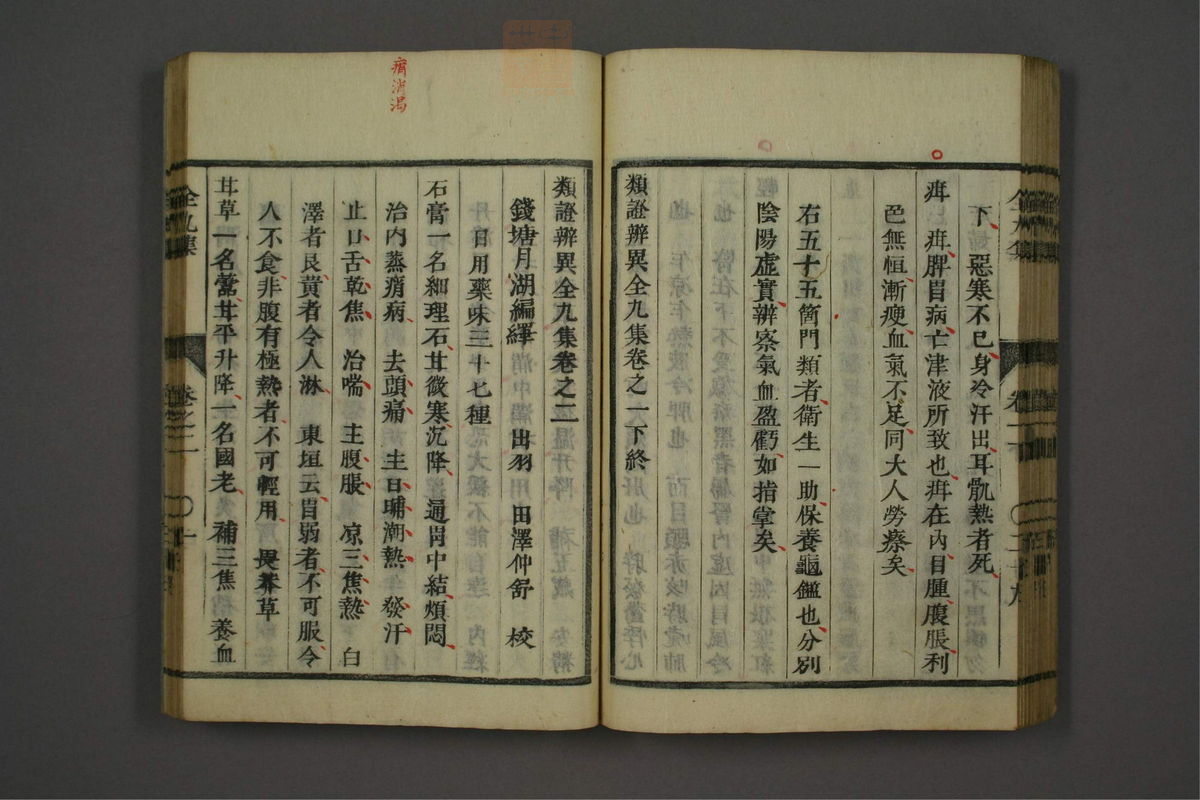 下惡寒不已身冷汗出耳骩熱者死
疳 疳脾胃病亡津液所致也疳在內目腫腹脹利
色無恒漸瘦血氣不足同大人勞瘵矣
右五十五箇門類者衛生一助保養龜鑑也分別
陰陽虛實辨察氣血盈虧如指掌矣
類證辨異全九集卷之一下終
類證辨異全九集卷之二
錢塘月湖編繹 出羽 田澤仲舒 校
日用藥味三十七種
石膏一名細理石甘微寒沉降 通胃中結煩悶
治內蒸痟病 去頭痛 主日晡潮熱 發汗
止口舌乾焦 治喘 主腹脹 凉三焦熱 白
澤者良黃者令人淋 東垣云胃弱者不可服令
人不食非腹有極熱者不可輕用 畏莽草
甘草一名蕾甘平升降一名國老 補三焦 養血
全九集
卷之二
痟消渴